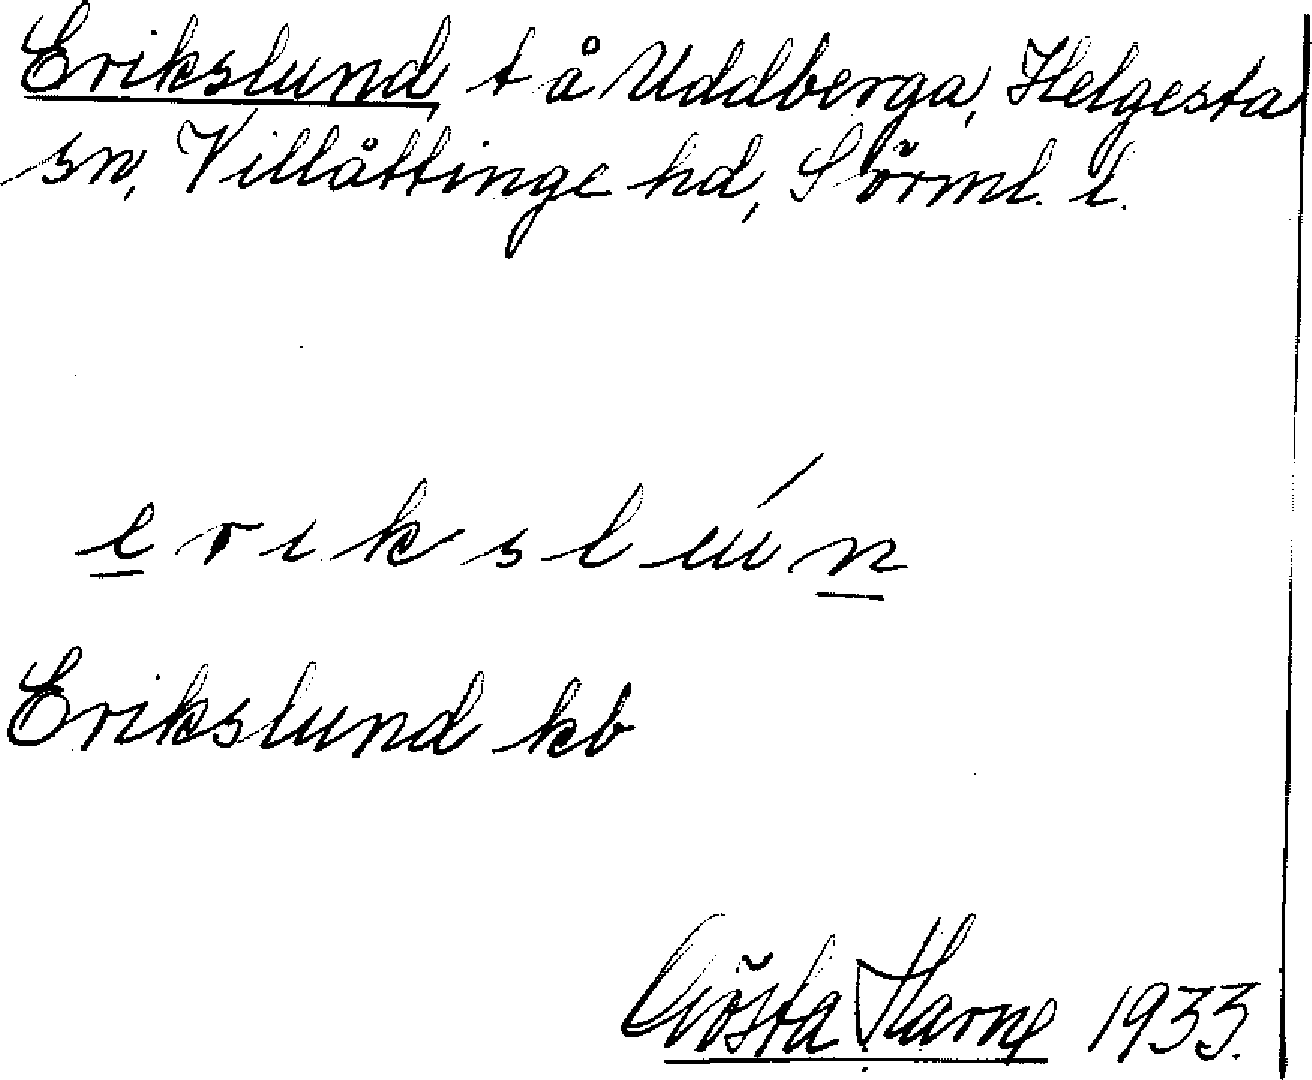 Erikslund, t å Uddberga, Helgesta
sn, Villåttinge hd, Sörml. l.
erikslún
Erikslund kb
Gösta Harne 1933.